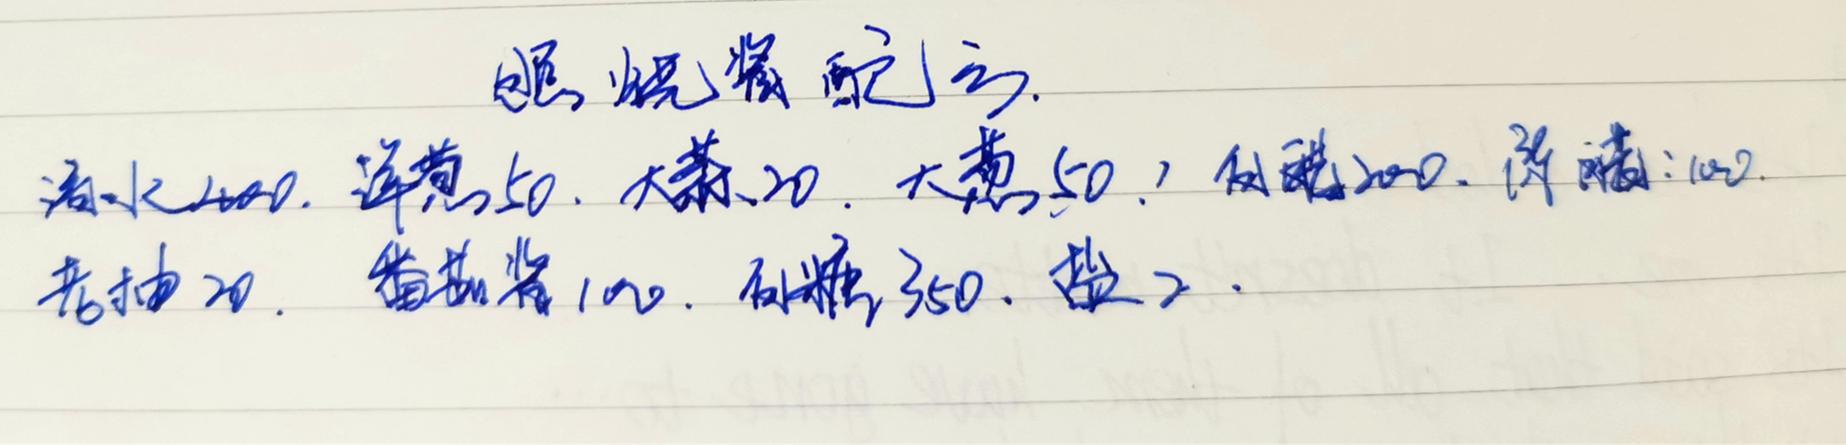 照烧酱配方.
清水400. 洋葱50. 大蒜20. 大葱50, 白醋200. 陈醋:100.
老抽20. 番茄酱100. 白糖350. 盐2.